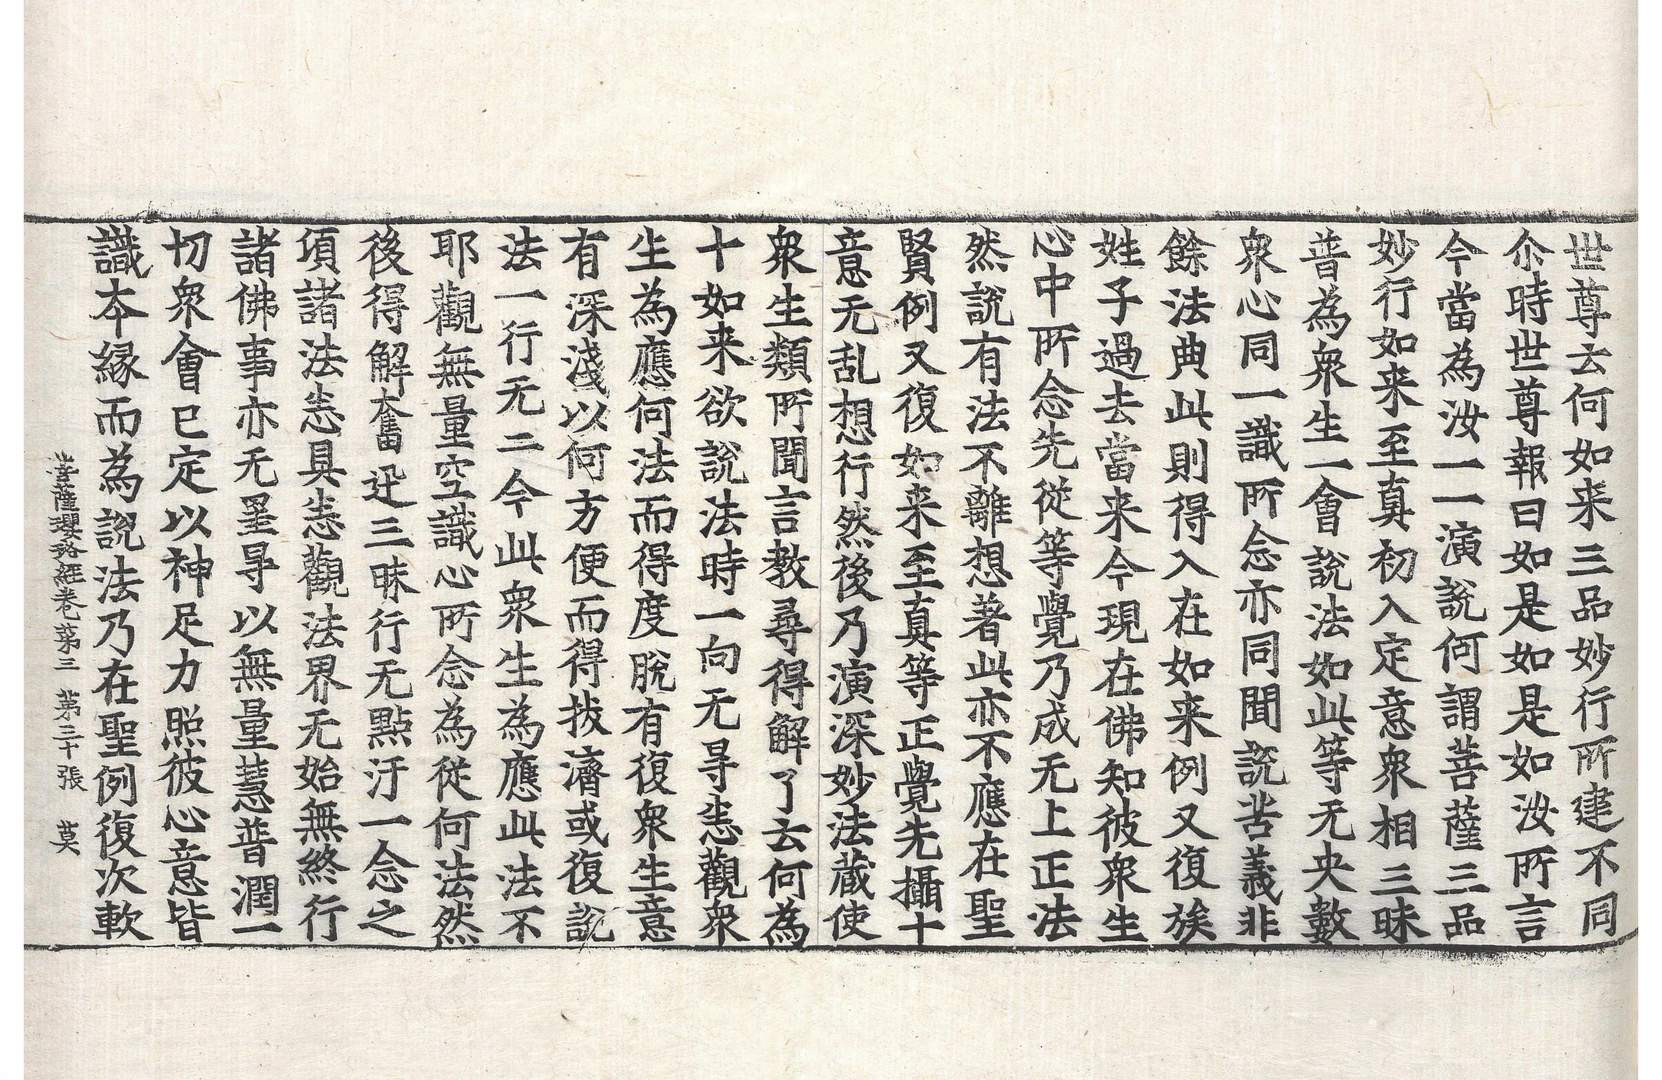 世尊云何如来三品妙行所建不同
尒時世尊報曰如是如是如汝所言
今當為汝一一演說何謂菩薩三品
妙行如来至真初入定意衆相三昧
普為衆生一會說法如此等无央數
衆心同一識所念亦同聞說苦義非
餘法典此則得入在如来例又復族
姓子過去當来今現在佛知彼衆生
心中所念先從等覺乃成无上正法
然說有法不離想著此亦不應在聖
賢例又復如来至真等正覺先攝十
意无乱想行然後乃演深妙法藏使
衆生類所聞言教尋得解了云何為
十如来欲說法時一向无㝵悉觀衆
生為應何法而得度脫有復衆生意
有深淺以何方便而得拔濟或復說
法一行无二今此衆生為應此法不
耶觀無量空識心所念為從何法然
後得解奮迅三昧行无點汙一念之
項諸法悉具悉觀法界无始無終行
諸佛事亦无罣㝵以無量慧普潤一
切衆會已定以神足力照彼心意皆
識本緣而為說法乃在聖例復次軟
菩薩瓔珞経卷第三　第三十張　莫